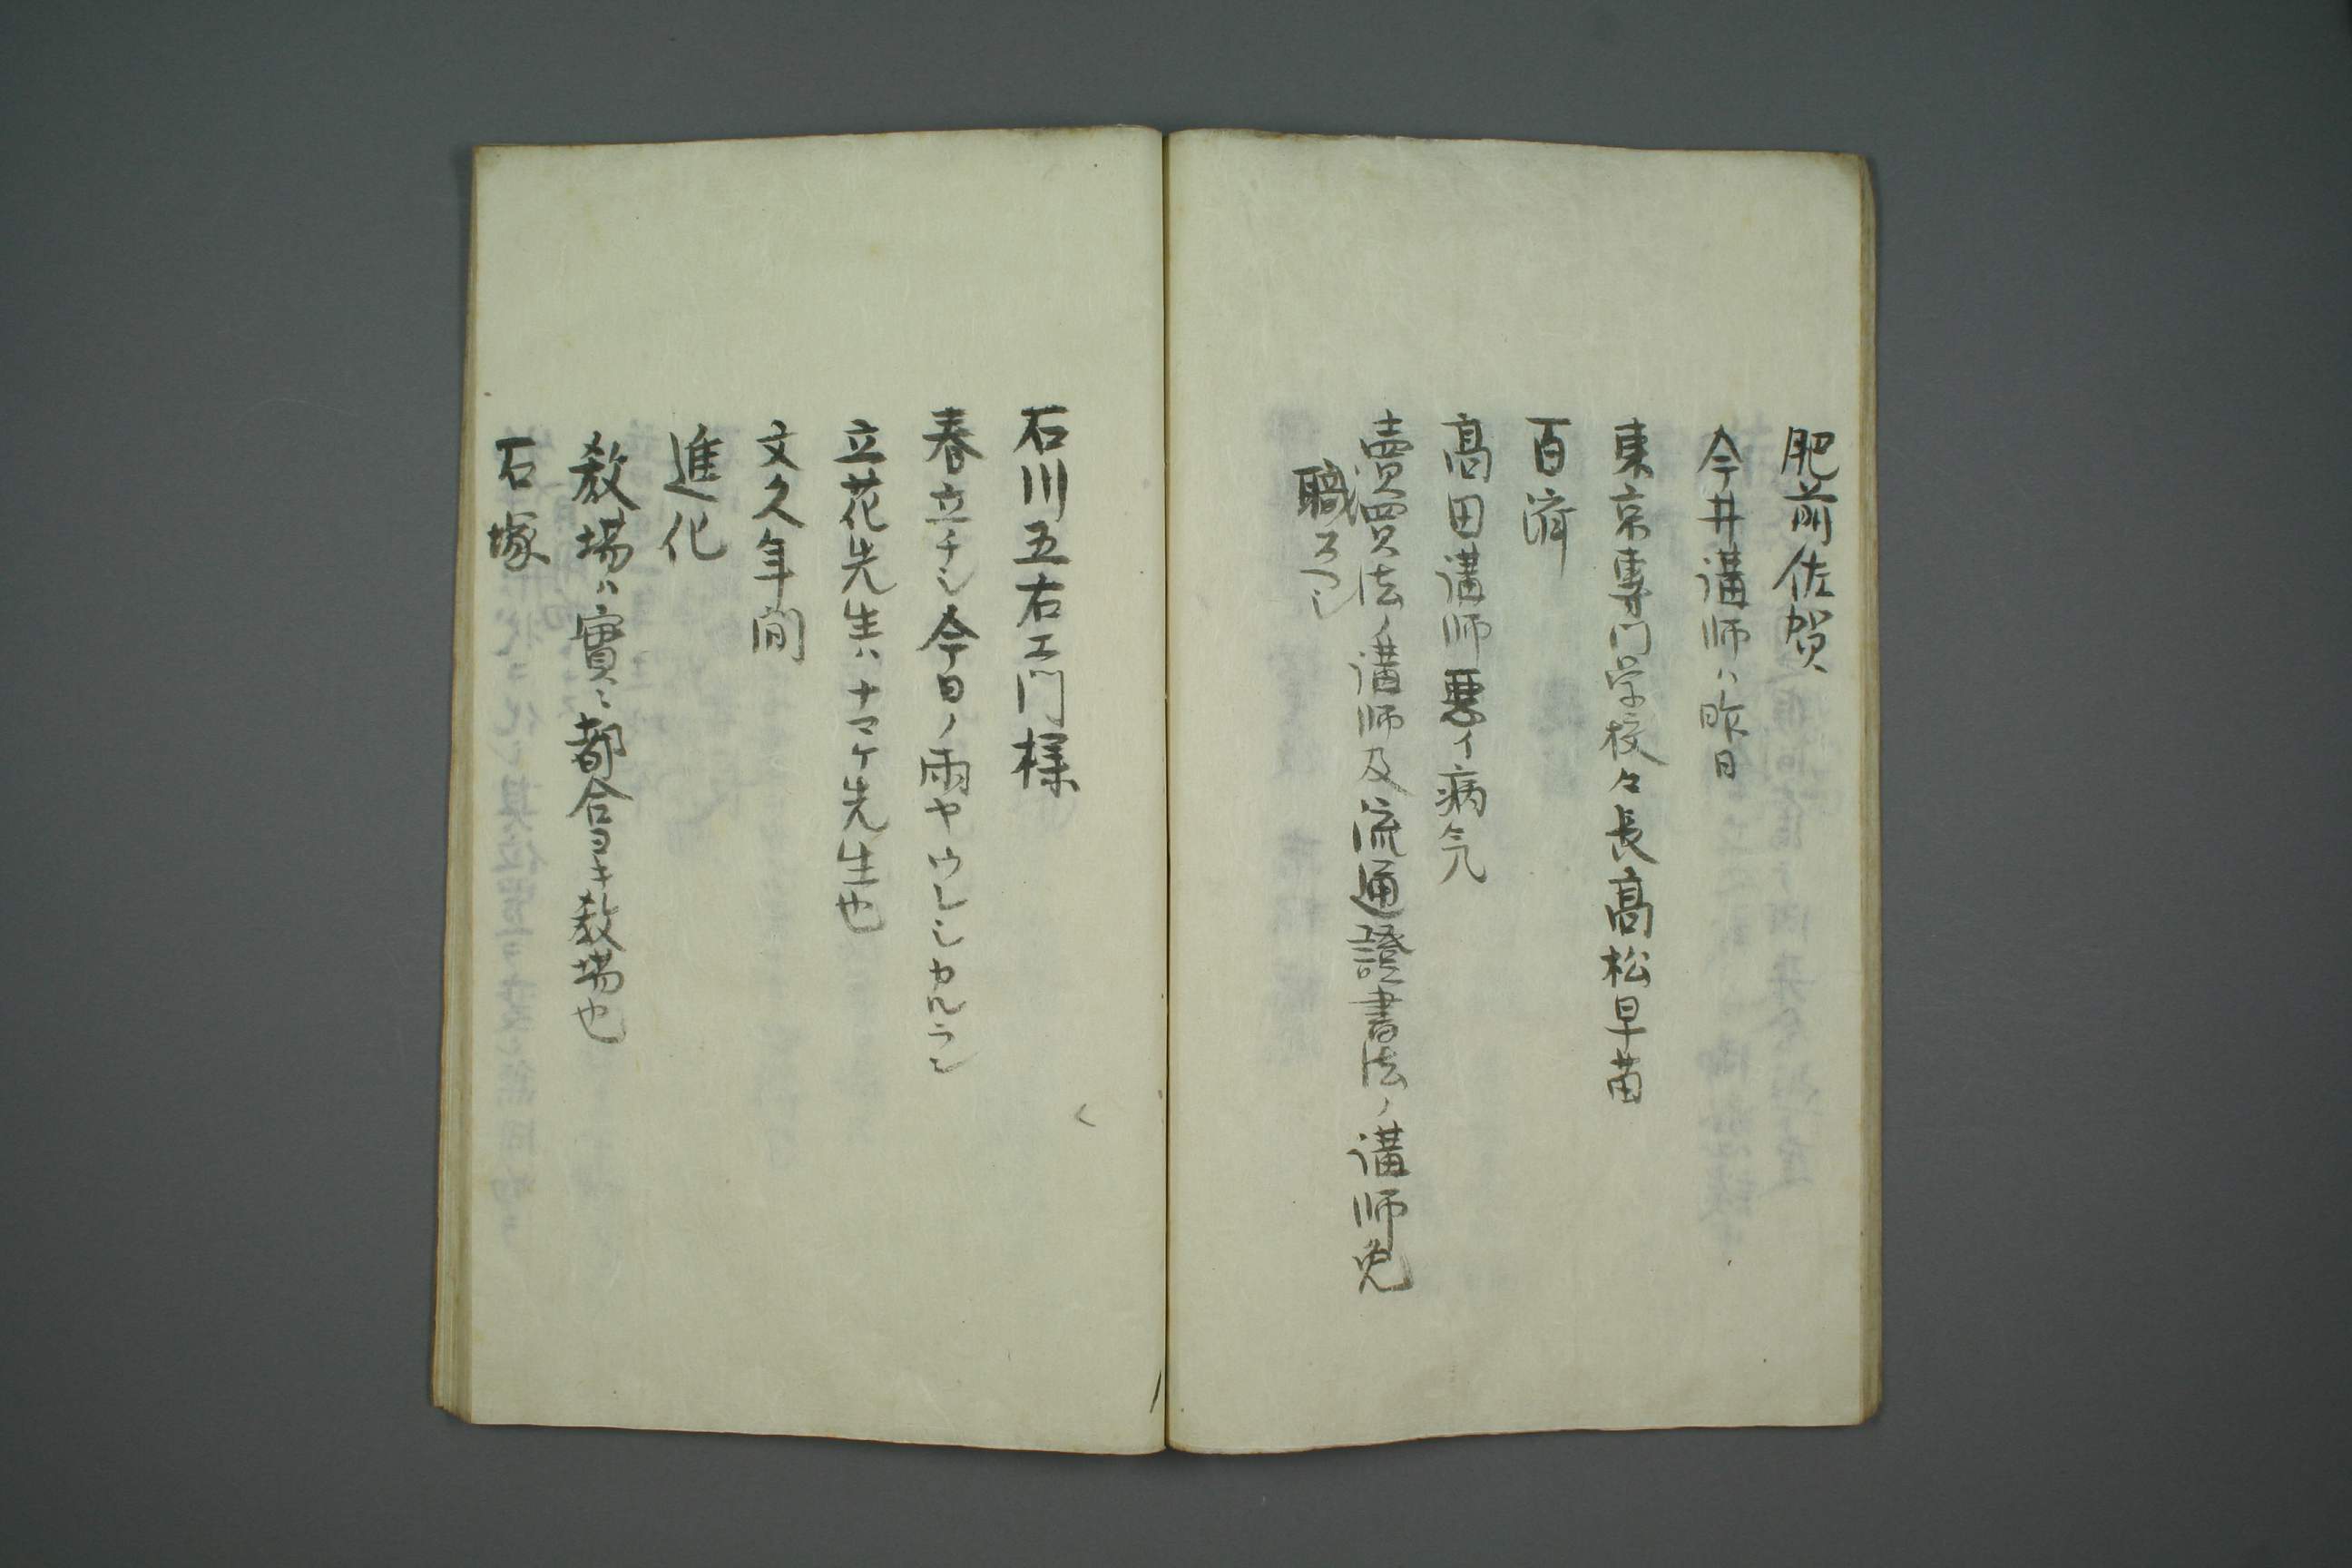 肥前佐賀
今井講師ハ昨日
東京專門学校々長高松早苗
百済
高田講師悪イ病気
賣買法ノ講師及流通證書法ノ講師免
職スヘシ
石川五右エ門様
春立チシ今日ノ雨ヤウレシカルラシ
立花先生ハナマケ先生也
文久年間
進化
教場ハ實ニ都合ヨキ教場也
石塚